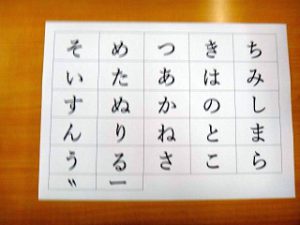 そ め つ き ち
い た あ は み
す ぬ か の し
ん り ね と ま
う る さ こ ら
〃 ー